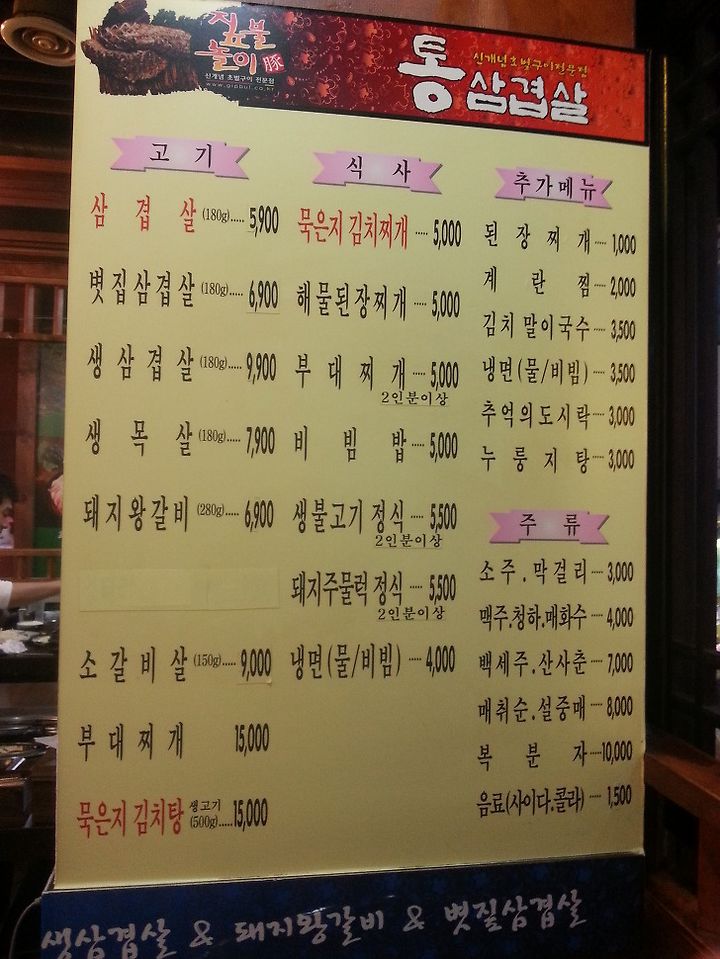 짚불
놀이 豚
신개념 초벌구이 전문점
www.gipbul.co.kr
신개념초벌구이전문점
통삼겹살
고기
삼겹살 (180g)..... 5,900
볏집삼겹살 (180g)..... 6,900
생삼겹살 (180g)..... 9,900
생목살 (180g)..... 7,900
돼지왕갈비 (280g)..... 6,900
소갈비살 (150g)..... 9,000
부대찌개 15,000
묵은지 김치탕 생고기 (500g)..... 15,000
식사
묵은지 김치찌개 ..... 5,000
해물된장찌개 ..... 5,000
부대찌개 ..... 5,000
2인분이상
비빔밥 ..... 5,000
생불고기 정식 ..... 5,500
2인분이상
돼지주물럭 정식 ..... 5,500
2인분이상
냉면(물/비빔) ..... 4,000
추가메뉴
된장찌개 ..... 1,000
계란찜 ..... 2,000
김치말이국수 ..... 3,500
냉면(물/비빔) ..... 3,500
추억의도시락 ..... 3,000
누룽지탕 ..... 3,000
주류
소주.막걸리 ..... 3,000
맥주.청하.매화수 ..... 4,000
백세주.산사춘 ..... 7,000
매취순.설중매 ..... 8,000
복분자 ..... 10,000
음료(사이다.콜라) ..... 1,500
생삼겹살 & 돼지왕갈비 & 볏짚삼겹살